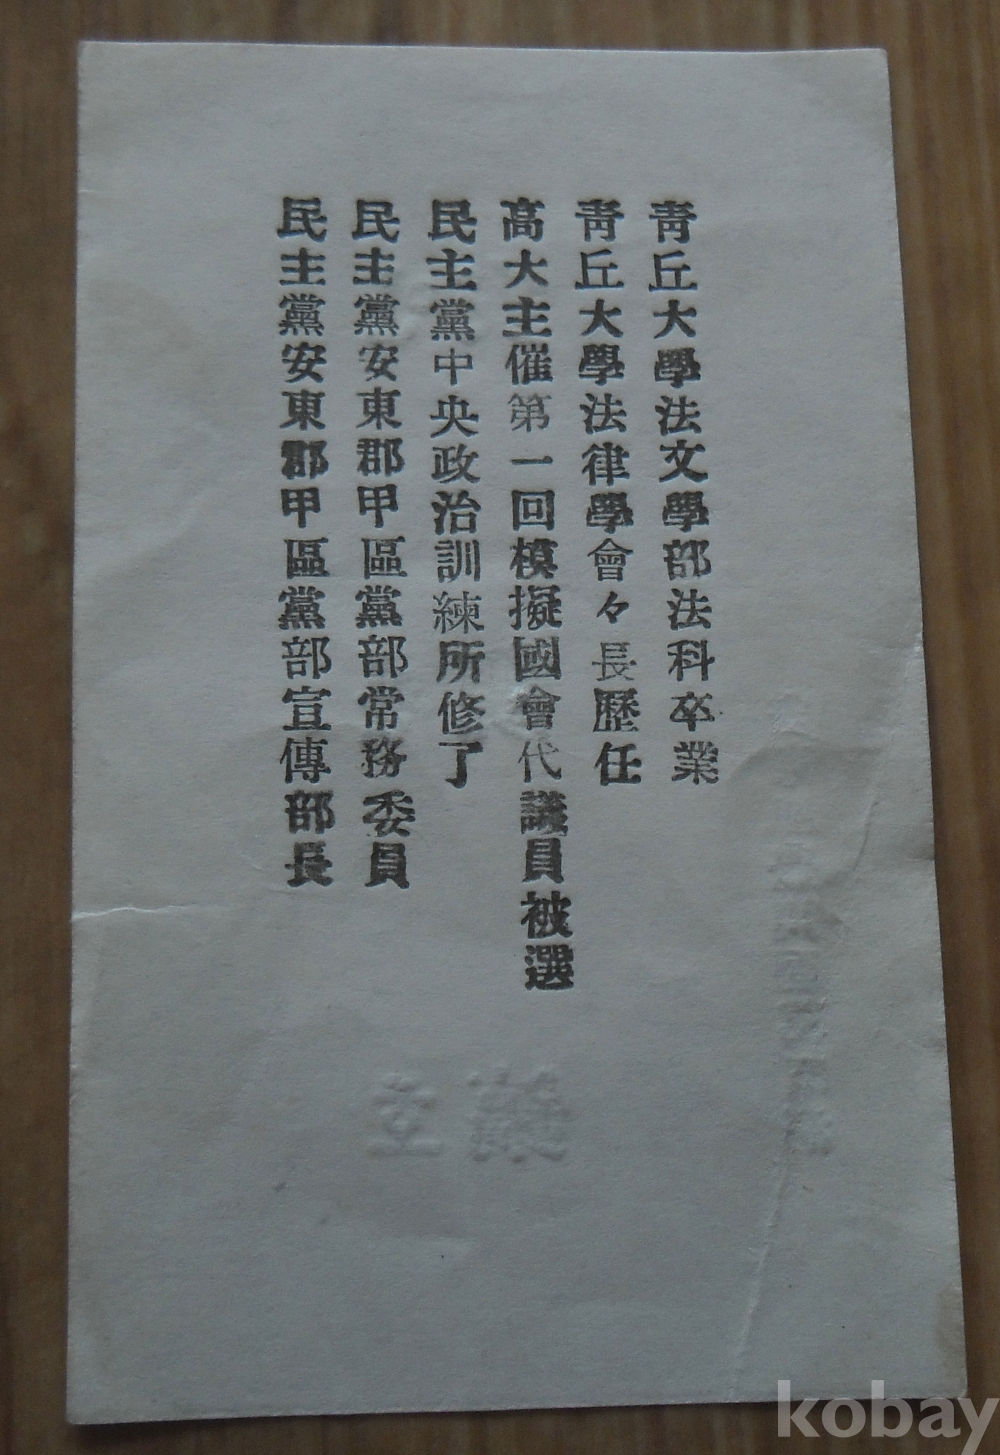 靑丘大學法文學部法科卒業
靑丘大學法律學會々長歷任
高大主催第一回模擬國會代議員被選
民主黨中央政治訓練所修了
民主黨安東郡甲區黨部常務委員
民主黨安東郡甲區黨部宣傳部長
kobay